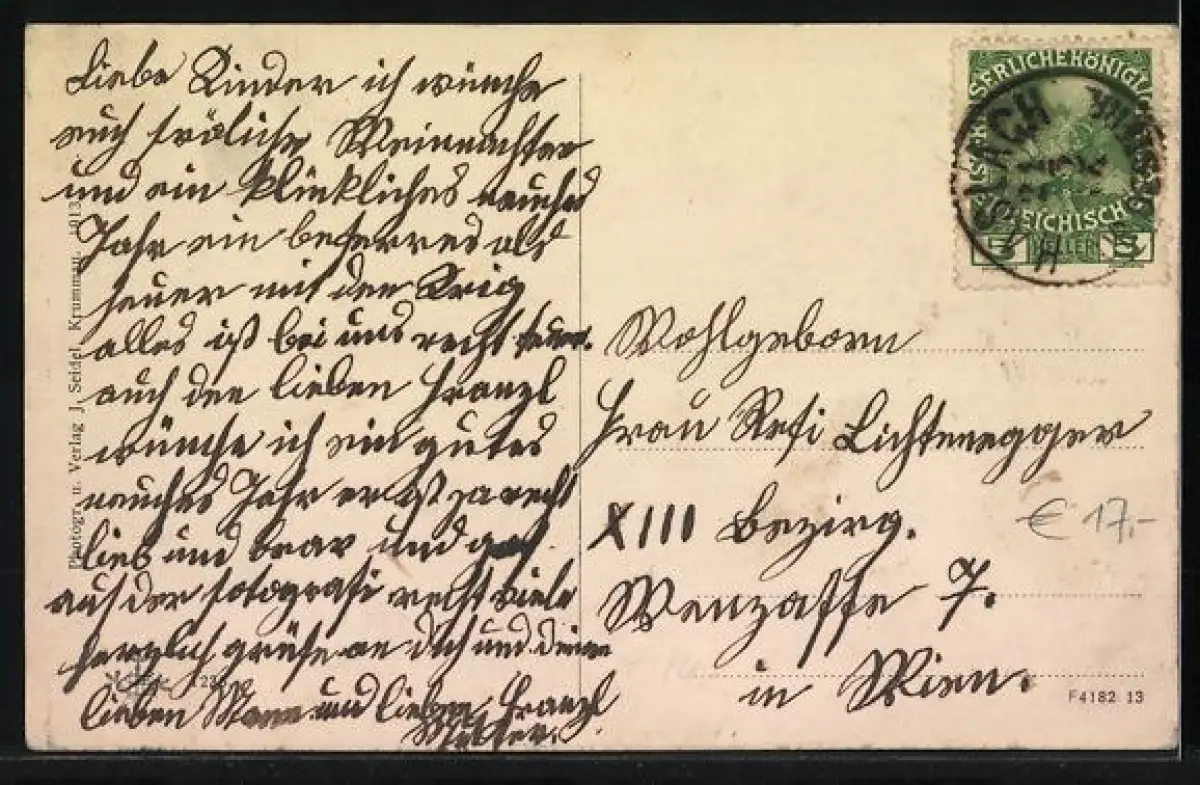 Liebe Kinder ich wünche
euch fröliche Weinnachten
und ein klückliches neuches
Jahr ein beserres als
heuer mit den Krig
alles ist bei uns recht teuer.
auch den lieben Franzl
wünche ich ein gutes
neuches Jahr er ist ja recht
lieb und brav und
auf der fotografi recht viele
herzlich grüße an dich und deinen
lieben Mann und lieben Franzl
Mutter.
Photogr. u. Verlag J. Seidel, Krummau. 1913.
KAISERLICHEKÖNIGLICHE
REICHISCH
5 HELLER 5
HASLACH
Wohlgeborn
Frau Resi Lichtenegger
XIII Bezirg.
€ 17,-
Wenzasse 7.
in Wien.
F4182 13